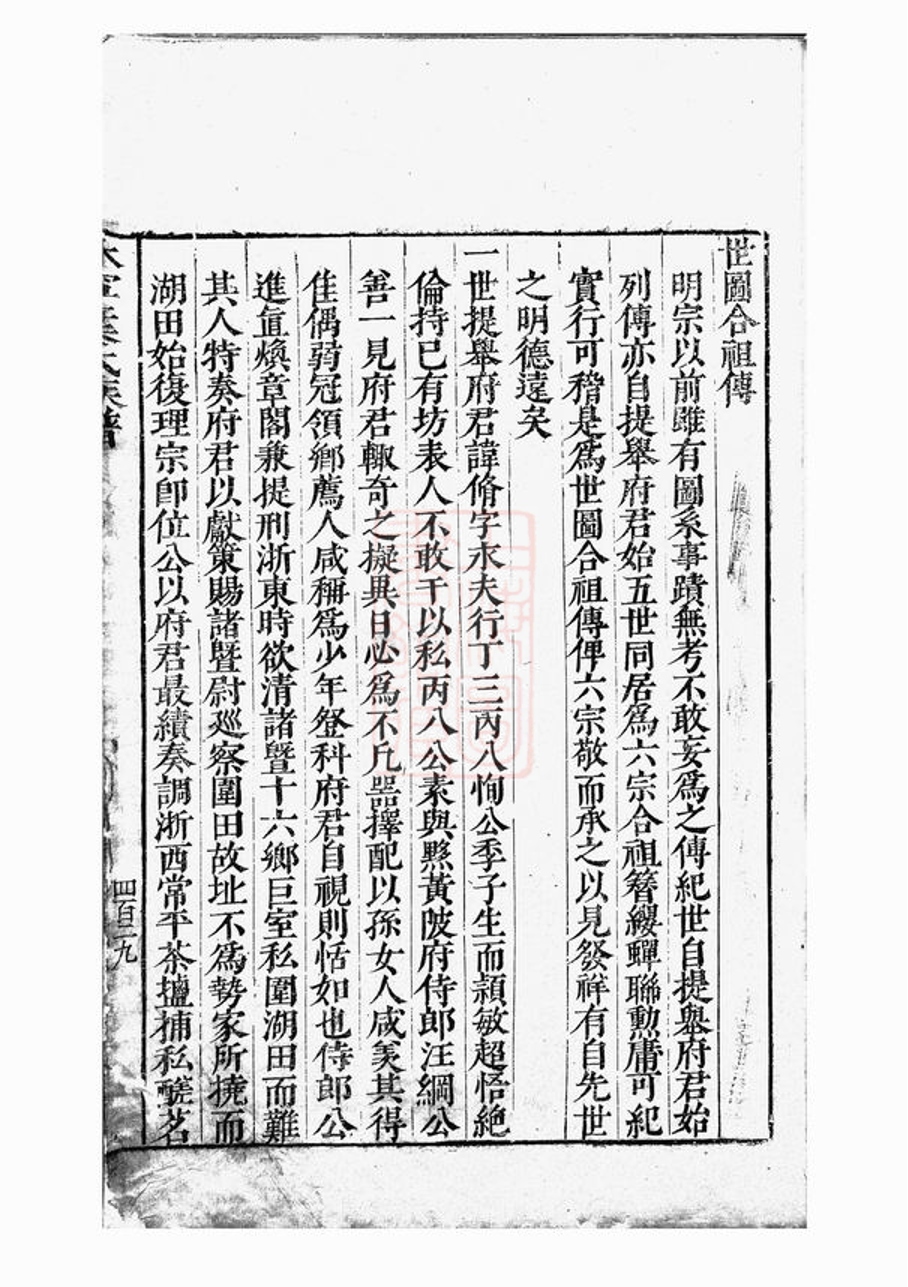 世圖合祖傳
明宗以前雖有圖系事蹟無考不敢妄爲之傳紀世自提舉府君始
列傳亦自提舉府君始五世同居爲六宗合祖簪纓蟬聯勲庸可紀
實行可稽是爲世圖合祖傳俾六宗敬而承之以見發祥有自先世
之明德遠矣
一世提舉府君諱脩字永夫行丁三丙八恂公季子生而頴敏超悟絶
倫持已有坊表人不敢干以私丙八公素與黟黃陂府侍郎汪綱公
善一見府君輙奇之擬異日必爲不凡噐擇配以孫女人咸羙其得
佳偶弱冠領鄉薦人咸稱爲少年登科府君自視則恬如也侍郎公
進直煥章閣兼提刑浙東時欲清諸暨十六鄉巨室私圍湖田而難
其人特奏府君以獻策賜諸暨尉廵察圍田故址不爲勢家所撓而
湖田始復理宗卽位公以府君最績奏調浙西常平茶鹽捕私醝茗
氏族譜
四百二九